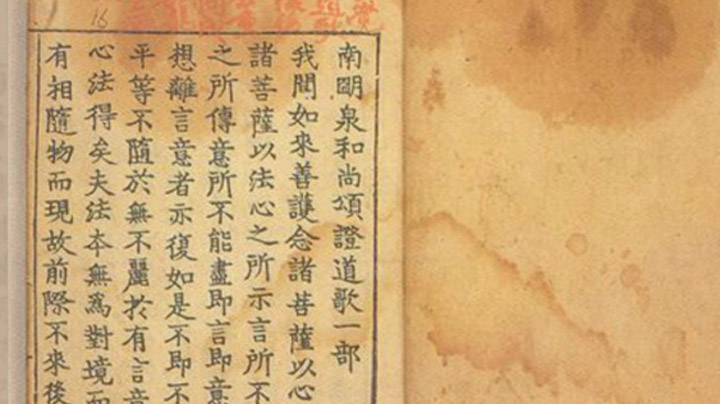 南明泉和尚頌證道歌一部
我聞如來善護念諸菩薩以心
諸菩薩以法心之所示言所不
之所傳意所不能盡即言即意
想離言意者亦復如是不即不
平等不隨於無不麗於有言意
心法得矣夫法本無爲對境而
有相隨物而現故前際不來後
16